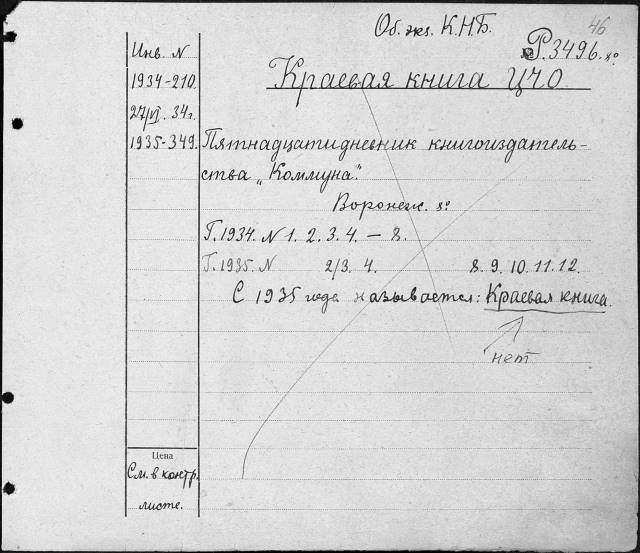 Об. экз. К.Н.Б.
46
Р.3496. 8º
Инв. N
Краевая книга ЦЧО
1934-210.
27/VI. 34г.
1935-349.
Пятнадцатидневник книгоиздатель-
ства „Коммуна".
Воронеж. 8º
Г. 1934. N 1. 2. 3. 4. — 8.
Г. 1935. N 2/3. 4. 8. 9. 10. 11. 12.
С 1935 года называется: Краевая книга.
нет
Цена
См. в контр.
листе.